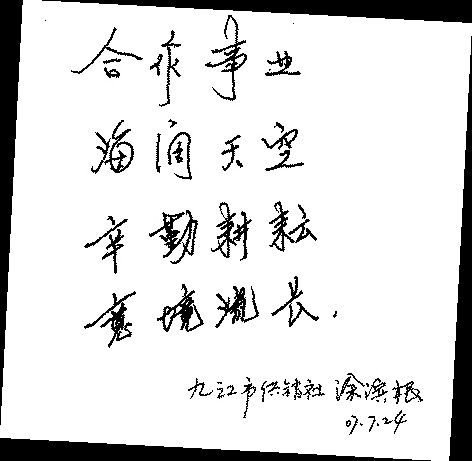 合作事业
海阔天空
辛勤耕耘
意境流长.
九江市供销社 涂滨根
07.7.24